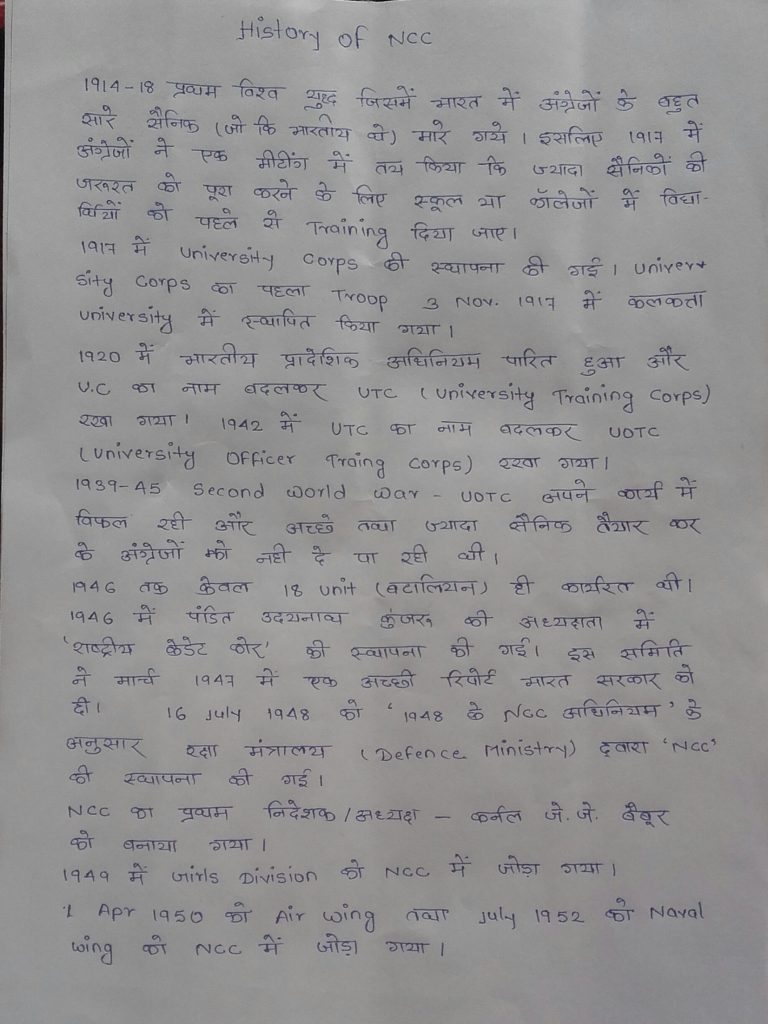 History of NCC
1914-18 प्रथम विश्व युद्ध जिसमें भारत में अंग्रेजों के बहुत
सारे सैनिक (जो कि भारतीय थे) मारे गये । इसलिए 1917 में
अंग्रेजों ने एक मीटींग में तय किया कि ज्यादा सैनिकों की
जरूरत को पूरा करने के लिए स्कूल या कॉलेजों में विद्या-
र्थियों को पहले से Training दिया जाए।
1917 में University Corps की स्थापना की गई। Univer
sity Corps का पहला Troop 3 Nov. 1917 में कलकत्ता
University में स्थापित किया गया।
1920 में भारतीय प्रादेशिक अधिनियम पारित हुआ और
U.C का नाम बदलकर UTC (University Training Corps)
रखा गया। 1942 में UTC का नाम बदलकर UOTC
(University Officer Traing Corps) रखा गया।
1939-45 Second World War - UOTC अपने कार्य में
विफल रही और अच्छे तथा ज्यादा सैनिक तैयार कर
के अंग्रेजों को नही दे पा रही थी।
1946 तक केवल 18 Unit (बटालियन) ही कार्यरत थी।
1946 में पंडित उदयनाथ कुंजरू की अध्यक्षता में
'राष्ट्रीय केडेट कोर' की स्थापना की गई। इस समिति
ने मार्च 1947 में एक अच्छी रिपोर्ट भारत सरकार को
दी। 16 July 1948 को '1948 के NCC अधिनियम' के
अनुसार रक्षा मंत्रालय (Defence Ministry) द्वारा 'NCC'
की स्थापना की गई।
NCC का प्रथम निदेशक/अध्यक्ष - कर्नल जे. जे. बैबूर
को बनाया गया।
1949 में Girls Division को NCC में जोड़ा गया।
1 Apr 1950 को Air wing तथा July 1952 को Naval
wing को NCC में जोड़ा गया।